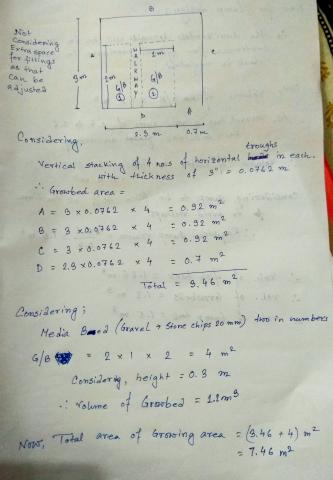 B
Not
Considering
Extra space
for fittings
as that
can be
adjusted
A
C
3m
1m
2m
G/B
①
WALKWAY
G/B
②
D
A
2.3 m
0.7m
Considering,
troughs
Vertical stacking of 4 no.s of horizontal in each.
with thickness of 3" = 0.0762 m
∴ Growbed area =
A = 3 x 0.0762 x 4 = 0.92 m²
B = 3 x 0.0762 x 4 = 0.92 m²
C = 3 x 0.0762 x 4 = 0.92 m²
D = 2.3 x 0.0762 x 4 = 0.7 m²
Total = 3.46 m²
Considering;
Media Bed (Gravel → Stone chips 20 mm) two in numbers
G/B = 2 x 1 x 2 = 4 m²
Considering, height = 0.3 m
∴ Volume of Growbed = 1.2 m³
Now, Total area of Growing area = (3.46 + 4) m²
= 7.46 m²